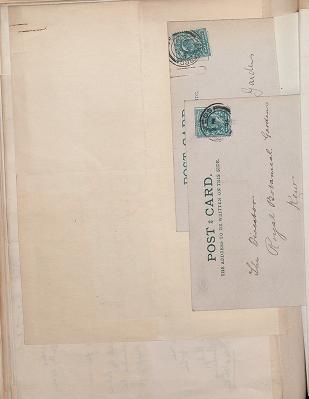 POST CARD.
Gardens
POST CARD.
THE ADDRESS TO BE WRITTEN ON THIS SIDE.
The Director
Royal Botanical Gardens
Kew